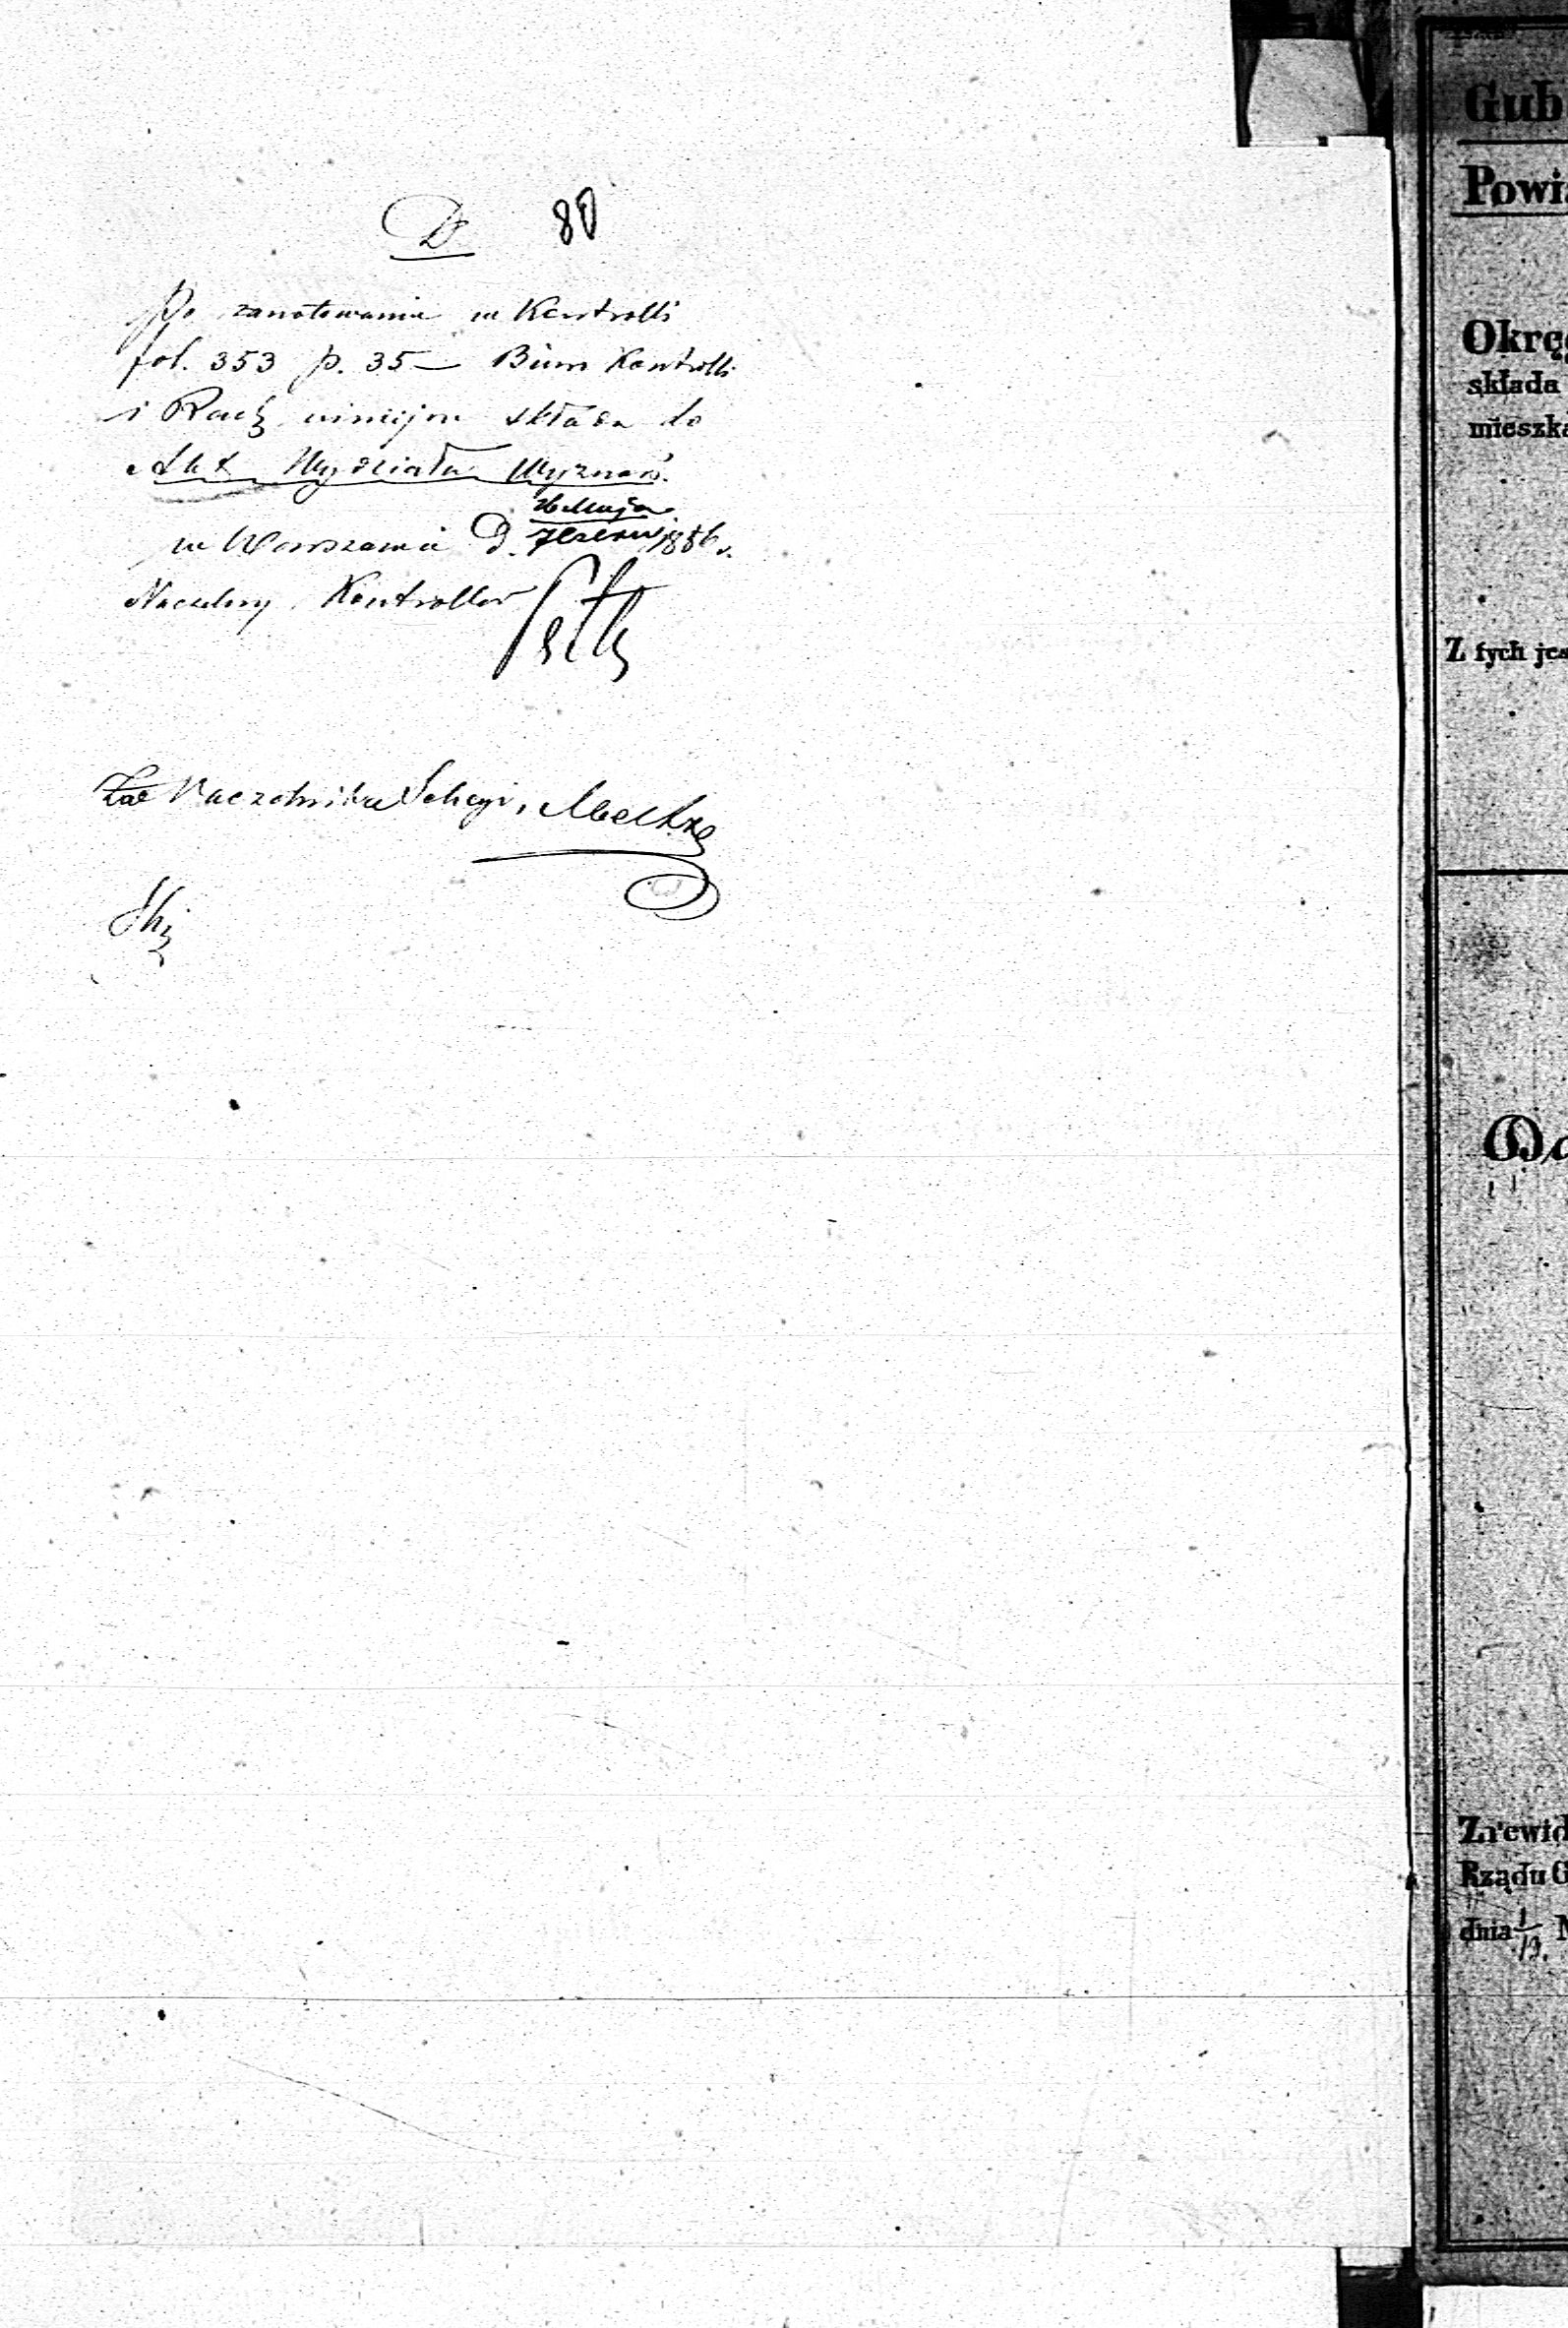 D. 80
Po zanotowaniu w Kontrolli
fol. 353 p. 35 — Biuro Kontrolli
i Rach niniejsze składa do
Akt Wydziału Wyznań.
26 Maja
w Warszawie D. 7 Czerw 1856 r.
Naczelny Kontroller
Naczelnika Sekcyi,
Gub
Powia
Okrę
składa
mieszka
Z tych jes
Zrewid
Rządu G
dnia 1/13. M